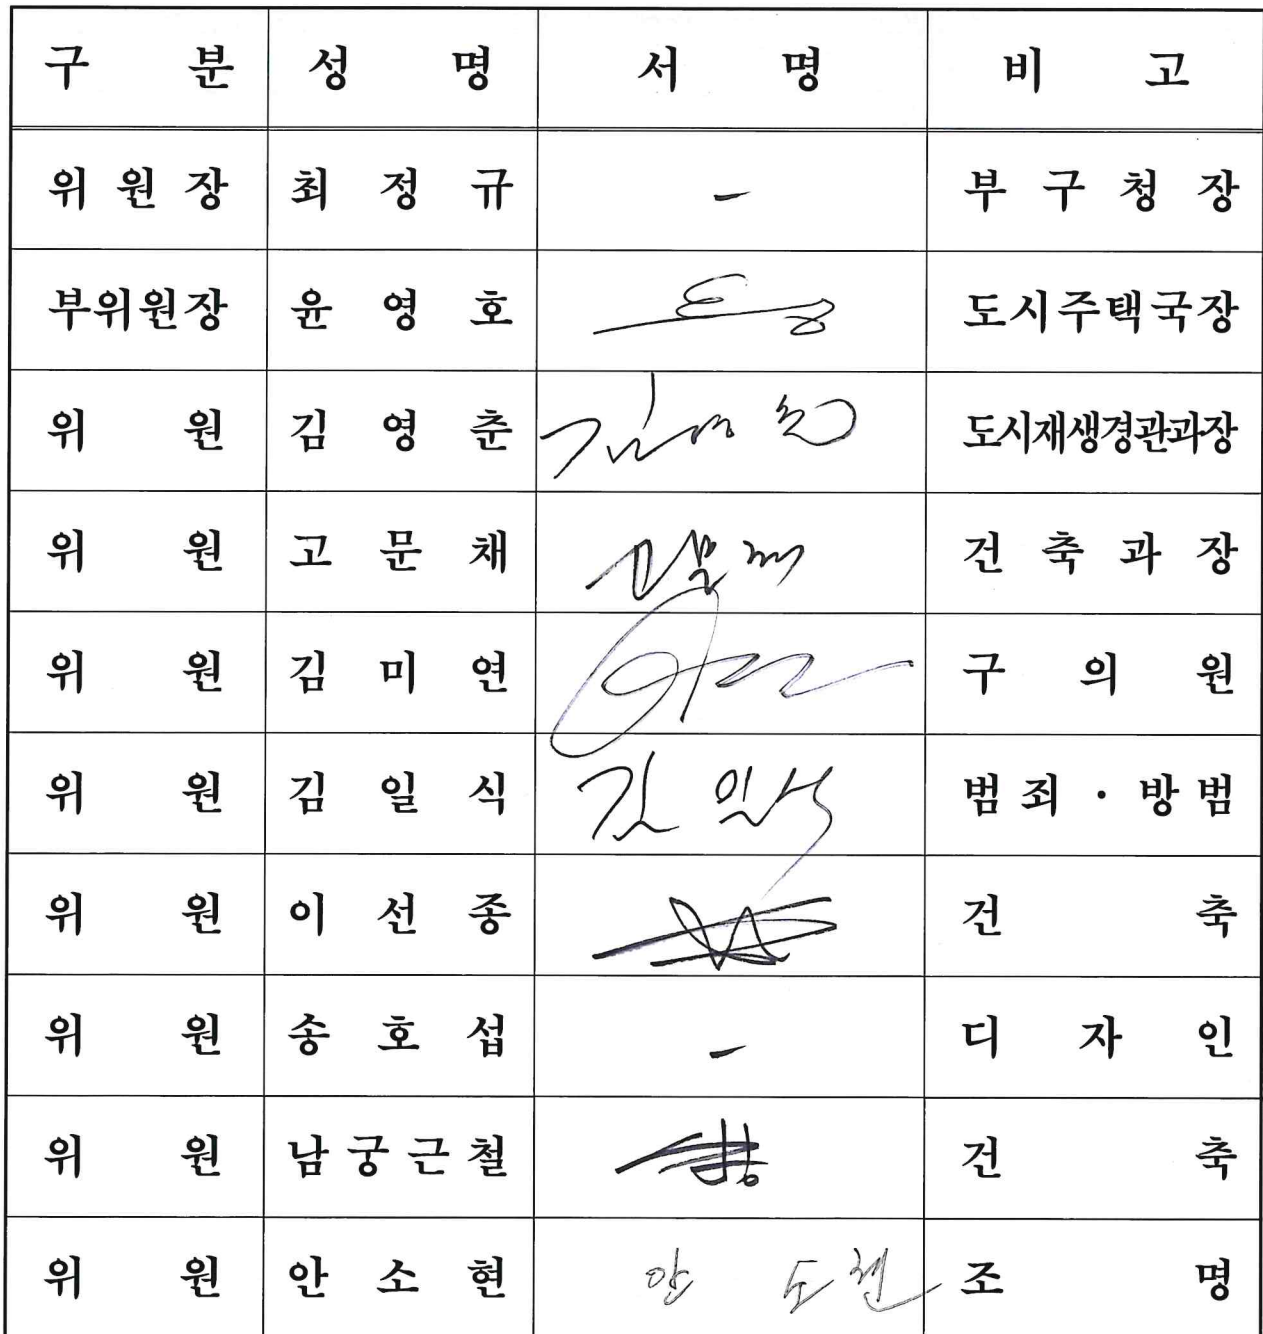 구 분 성 명 서 명 비 고
위 원 장 최 정 규 - 부 구 청 장
부위원장 윤 영 호 도시주택국장
위 원 김 영 춘 김영춘 도시재생경관과장
위 원 고 문 채 고문채 건 축 과 장
위 원 김 미 연 구 의 원
위 원 김 일 식 김 일식 범 죄 · 방 범
위 원 이 선 종 건 축
위 원 송 호 섭 - 디 자 인
위 원 남 궁 근 철 건 축
위 원 안 소 현 안 소현 조 명